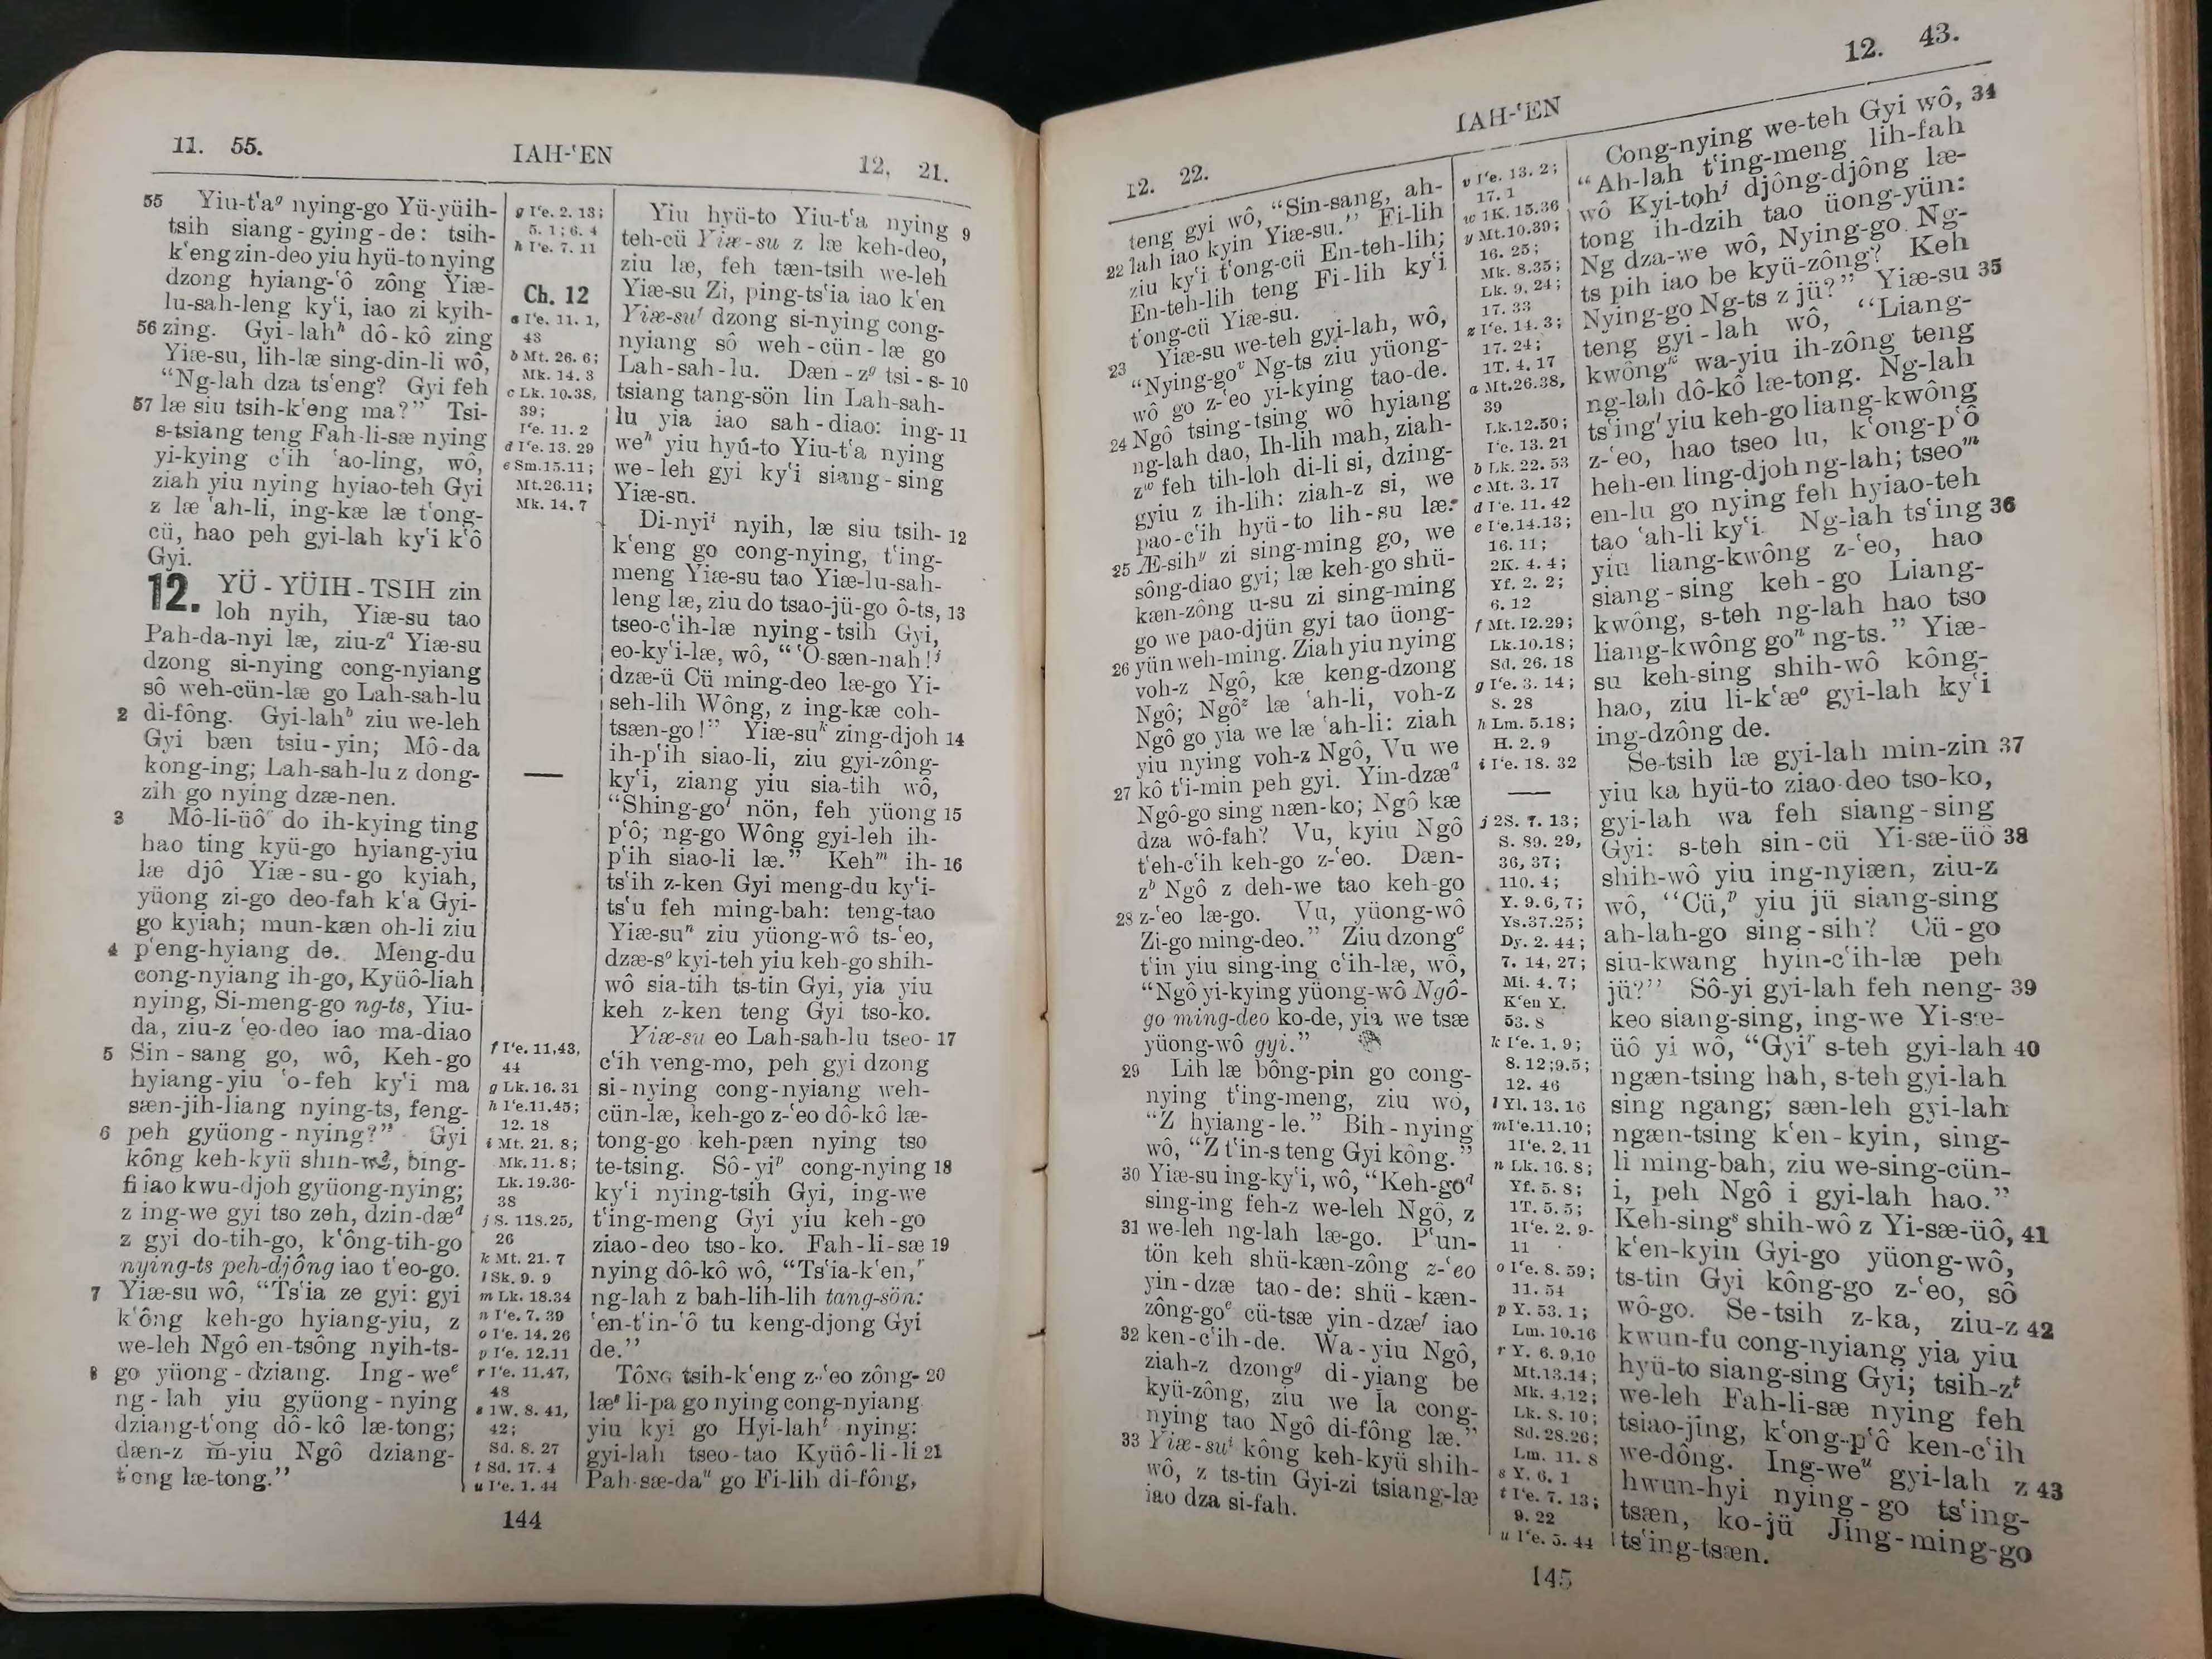 11. 55.
IAH-ʻEN
12. 21.
55 Yiu-tʻaᵍ nying-go Yü-yüih-
tsih siang-gying-de: tsih-
kʻeng zin-deo yiu hyü-to nying
dzong hyiang-ʻô zông Yiæ-
lu-sah-leng kyʻi, iao zi kyih-
56 zing. Gyi-lahʰ dô-kô zing
Yiæ-su, lih-læ sing-din-li wô,
“Ng-lah dza tsʻeng? Gyi feh
57 læ siu tsih-kʻeng ma?” Tsi-
s-tsiang teng Fah-li-sæ nying
yi-kying cʻih ʻao-ling, wô,
ziah yiu nying hyiao-teh Gyi
z læ ʻah-li, ing-kæ læ tʻong-
cü, hao peh gyi-lah kyʻi kʻô
Gyi.
12. YÜ-YÜIH-TSIH zin
loh nyih, Yiæ-su tao
Pah-da-nyi læ, ziu-zᵃ Yiæ-su
dzong si-nying cong-nyiang
sô weh-cün-læ go Lah-sah-lu
2 di-fông. Gyi-lahᵇ ziu we-leh
Gyi bæn tsiu-yin; Mô-da
kong-ing; Lah-sah-lu z dong-
zih go nying dzæ-nen.
3 Mô-li-üôᶜ do ih-kying ting
hao ting kyü-go hyiang-yiu
læ djô Yiæ-su-go kyiah,
yüong zi-go deo-fah kʻa Gyi-
go kyiah; mun-kæn oh-li ziu
4 pʻeng-hyiang de. Meng-du
cong-nyiang ih-go, Kyüô-liah
nying, Si-meng-go ng-ts, Yiu-
da, ziu-z ʻeo-deo iao ma-diao
5 Sin-sang go, wô, Keh-go
hyiang-yiu ʻo-feh kyʻi ma
sæn-jih-liang nying-ts, feng-
6 peh gyüong-nying?” Gyi
kông keh-kyü shih-wô, bing-
fi iao kwu-djoh gyüong-nying;
z ing-we gyi tso zeh, dzin-dæᵈ
z gyi do-tih-go, kʻông-tih-go
nying-ts peh-djông iao tʻeo-go.
7 Yiæ-su wô, “Tsʻia ze gyi: gyi
kʻông keh-go hyiang-yiu, z
we-leh Ngô en-tsông nyih-ts-
8 go yüong-dziang. Ing-weᵉ
ng-lah yiu gyüong-nying
dziang-tʻong dô-kô læ-tong;
dæn-z m̆-yiu Ngô dziang-
tʻong læ-tong.”
g Iʻe. 2. 13;
5. 1; 6. 4
h Iʻe. 7. 11
Ch. 12
a Iʻe. 11. 1,
43
b Mt. 26. 6;
Mk. 14. 3
c Lk. 10.38,
39;
Iʻe. 11. 2
d Iʻe. 13. 29
e Sm.15.11;
Mt.26.11;
Mk. 14. 7
f Iʻe. 11,43,
44
g Lk. 16. 31
h Iʻe.11.45;
12. 18
i Mt. 21. 8;
Mk. 11. 8;
Lk. 19.36-
38
j S. 118.25,
26
k Mt. 21. 7
l Sk. 9. 9
m Lk. 18.34
n Iʻe. 7. 39
o Iʻe. 14. 26
p Iʻe. 12.11
r Iʻe. 11.47,
48
s 1W. 8. 41,
42;
Sd. 8. 27
t Sd. 17. 4
u Iʻe. 1. 44
Yiu hyü-to Yiu-tʻa nying 9
teh-cü Yiæ-su z læ keh-deo,
ziu læ, feh tæn-tsih we-leh
Yiæ-su Zi, ping-tsʻia iao kʻen
Yiæ-suᶠ dzong si-nying cong-
nyiang sô weh-cün-læ go
Lah-sah-lu. Dæn-zᵍ tsi-s- 10
tsiang tang-sön lin Lah-sah-
lu yia iao sah-diao: ing- 11
weʰ yiu hyü-to Yiu-tʻa nying
we-leh gyi kyʻi siang-sing
Yiæ-su.
Di-nyiⁱ nyih, læ siu tsih- 12
kʻeng go cong-nying, tʻing-
meng Yiæ-su tao Yiæ-lu-sah-
leng læ, ziu do tsao-jü-go ô-ts, 13
tseo-cʻih-læ nying-tsih Gyi,
eo-kyʻi-læ, wô, “ʻO-sæn-nah!ʲ
dzæ-ü Cü ming-deo læ-go Yi-
seh-lih Wông, z ing-kæ coh-
tsæn-go!” Yiæ-suᵏ zing-djoh 14
ih-pʻih siao-li, ziu gyi-zông-
kyʻi, ziang yiu sia-tih wô,
“Shing-goˡ nön, feh yüong 15
pʻô; ng-go Wông gyi-leh ih-
pʻih siao-li læ.” Kehᵐ ih- 16
tsʻih z-ken Gyi meng-du kyʻi-
tsʻu feh ming-bah: teng-tao
Yiæ-suⁿ ziu yüong-wô ts-ʻeo,
dzæ-sᵒ kyi-teh yiu keh-go shih-
wô sia-tih ts-tin Gyi, yia yiu
keh z-ken teng Gyi tso-ko.
Yiæ-su eo Lah-sah-lu tseo- 17
cʻih veng-mo, peh gyi dzong
si-nying cong-nyiang weh-
cün-læ, keh-go z-ʻeo dô-kô læ-
tong-go keh-pæn nying tso
te-tsing. Sô-yiᵖ cong-nying 18
kyʻi nying-tsih Gyi, ing-we
tʻing-meng Gyi yiu keh-go
ziao-deo tso-ko. Fah-li-sæ 19
nying dô-kô wô, “Tsʻia-kʻen,ʳ
ng-lah z bah-lih-lih tang-sön:
ʻen-tʻin-ʻô tu keng-djong Gyi
de.”
TÔNG tsih-kʻeng z-ʻeo zông- 20
læˢ li-pa go nying cong-nyiang
yiu kyi go Hyi-lahᵗ nying:
gyi-lah tseo-tao Kyüô-li-li 21
Pah-sæ-daᵘ go Fi-lih di-fông,
144
12. 22.
IAH-ʻEN
12. 43.
teng gyi wô, “Sin-sang, ah-
22 lah iao kyin Yiæ-su.” Fi-lih
ziu kyʻi tʻong-cü En-teh-lih;
En-teh-lih teng Fi-lih kyʻi
tʻong-cü Yiæ-su.
23 Yiæ-su we-teh gyi-lah, wô,
“Nying-goᵛ Ng-ts ziu yüong-
wô go z-ʻeo yi-kying tao-de.
24 Ngô tsing-tsing wô hyiang
ng-lah dao, Ih-lih mah, ziah-
zʷ feh tih-loh di-li si, dzing-
gyiu z ih-lih: ziah-z si, we
pao-cʻih hyü-to lih-su læ:
25 Æ-sihʸ zi sing-ming go, we
sông-diao gyi; læ keh-go shü-
kæn-zông u-su zi sing-ming
go we pao-djün gyi tao üong-
26 yün weh-ming. Ziah yiu nying
voh-z Ngô, kæ keng-dzong
Ngô; Ngôᶻ læ ʻah-li, voh-z
Ngô go yia we læ ʻah-li: ziah
yiu nying voh-z Ngô, Vu we
27 kô tʻi-min peh gyi. Yin-dzæᵃ
Ngô-go sing næn-ko; Ngô kæ
dza wô-fah? Vu, kyiu Ngô
tʻeh-cʻih keh-go z-ʻeo. Dæn-
zᵇ Ngô z deh-we tao keh-go
28 z-ʻeo læ-go. Vu, yüong-wô
Zi-go ming-deo.” Ziu dzongᶜ
tʻin yiu sing-ing cʻih-læ, wô,
“Ngô yi-kying yüong-wô Ngô-
go ming-deo ko-de, yia we tsæ
yüong-wô gyi.”
29 Lih læ bông-pin go cong-
nying tʻing-meng, ziu wô,
“Z hyiang-le.” Bih-nying
wô, “Z tʻin-s teng Gyi kông.”
30 Yiæ-su ing-kyʻi, wô, “Keh-goᵈ
sing-ing feh-z we-leh Ngô, z
31 we-leh ng-lah læ-go. Pʻun-
tön keh shü-kæn-zông z-ʻeo
yin-dzæ tao-de: shü-kæn-
zông-goᵉ cü-tsæ yin-dzæᶠ iao
32 ken-cʻih-de. Wa-yiu Ngô,
ziah-z dzongᵍ di-yiang be
kyü-zông, ziu we la cong-
nying tao Ngô di-fông læ.”
33 Yiæ-suⁱ kông keh-kyü shih-
wô, z ts-tin Gyi-zi tsiang-læ
iao dza si-fah.
v Iʻe. 13. 2;
17. 1
w 1K. 15.36
y Mt.10.39;
16. 25;
Mk. 8.35;
Lk. 9. 24;
17. 33
z Iʻe. 14. 3;
17. 24;
1T. 4. 17
a Mt.26.38,
39
Lk.12.50;
Iʻe. 13. 21
b Lk. 22. 53
c Mt. 3. 17
d Iʻe. 11. 42
e Iʻe.14.13;
16. 11;
2K. 4. 4;
Yf. 2. 2;
6. 12
f Mt. 12.29;
Lk.10.18;
Sd. 26. 18
g Iʻe. 3. 14;
8. 28
h Lm. 5.18;
H. 2. 9
i Iʻe. 18. 32
j 2S. 7. 13;
S. 89. 29,
36, 37;
110. 4;
Y. 9.6,7;
Ys.37.25;
Dy. 2. 44;
7. 14, 27;
Mi. 4. 7;
Kʻen Y.
53. 8
k Iʻe. 1. 9;
8. 12;9.5;
12. 46
l Yl. 13. 16
m Iʻe.11.10;
1Iʻe. 2. 11
n Lk. 16. 8;
Yf. 5. 8;
1T. 5. 5;
1Iʻe. 2. 9-
11
o Iʻe. 8. 59;
11. 54
p Y. 53. 1;
Lm. 10.16
r Y. 6. 9,10
Mt.13.14;
Mk. 4,12;
Lk. 8. 10;
Sd.28.26;
Lm. 11. 8
s Y. 6. 1
t Iʻe. 7. 13;
9. 22
u Iʻe. 5. 44
Cong-nying we-teh Gyi wô, 34
“Ah-lah tʻing-meng lih-fah
wô Kyi-tohʲ djông-djông læ-
tong ih-dzih tao üong-yün:
Ng dza-we wô, Nying-go Ng-
ts pih iao be kyü-zông? Keh
Nying-go Ng-ts z jü?” Yiæ-su 35
teng gyi-lah wô, “Liang-
kwôngᵏ wa-yiu ih-zông teng
ng-lah dô-kô læ-tong. Ng-lah
tsʻingˡ yiu keh-go liang-kwông
z-ʻeo, hao tseo lu, kʻong-pʻô
heh-en ling-djoh ng-lah; tseoᵐ
en-lu go nying feh hyiao-teh
tao ʻah-li kyʻi. Ng-lah tsʻing 36
yiu liang-kwông z-ʻeo, hao
siang-sing keh-go Liang-
kwông, s-teh ng-lah hao tso
liang-kwông goⁿ ng-ts.” Yiæ-
su keh-sing shih-wô kông-
hao, ziu li-kʻæᵒ gyi-lah kyʻi
ing-dzông de.
Se-tsih læ gyi-lah min-zin 37
yiu ka hyü-to ziao-deo tso-ko,
gyi-lah wa feh siang-sing
Gyi: s-teh sin-cü Yi-sæ-üô 38
shih-wô yiu ing-nyiæn, ziu-z
wô, “Cü,ᵖ yiu jü siang-sing
ah-lah-go sing-sih? Cü-go
siu-kwang hyin-cʻih-læ peh
jü?” Sô-yi gyi-lah feh neng- 39
keo siang-sing, ing-we Yi-sæ-
üô yi wô, “Gyiʳ s-teh gyi-lah 40
ngæn-tsing hah, s-teh gyi-lah
sing ngang; sæn-leh gyi-lah
ngæn-tsing kʻen-kyin, sing-
li ming-bah, ziu we-sing-cün-
i, peh Ngô i gyi-lah hao.”
Keh-singˢ shih-wô z Yi-sæ-üô, 41
kʻen-kyin Gyi-go yüong-wô,
ts-tin Gyi kông-go z-ʻeo, sô
wô-go. Se-tsih z-ka, ziu-z 42
kwun-fu cong-nyiang yia yiu
hyü-to siang-sing Gyi; tsih-zᵗ
we-leh Fah-li-sæ nying feh
tsiao-jing, kʻong-pʻô ken-cʻih
we-dông. Ing-weᵘ gyi-lah z 43
hwun-hyi nying-go tsʻing-
tsæn, ko-jü Jing-ming-go
tsʻing-tsæn.
145